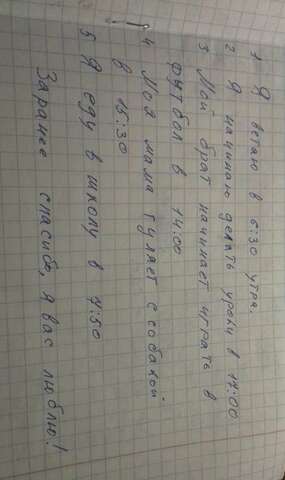 1 Я встаю в 6:30 утра.
2 Я начинаю делать уроки в 17:00
3 Мой брат начинает играть в
футбол в 14:00
4 Моя мама гуляет с собакой
в 15:30
5 Я еду в школу в 7:50
Заранее спасибо, я вас люблю!